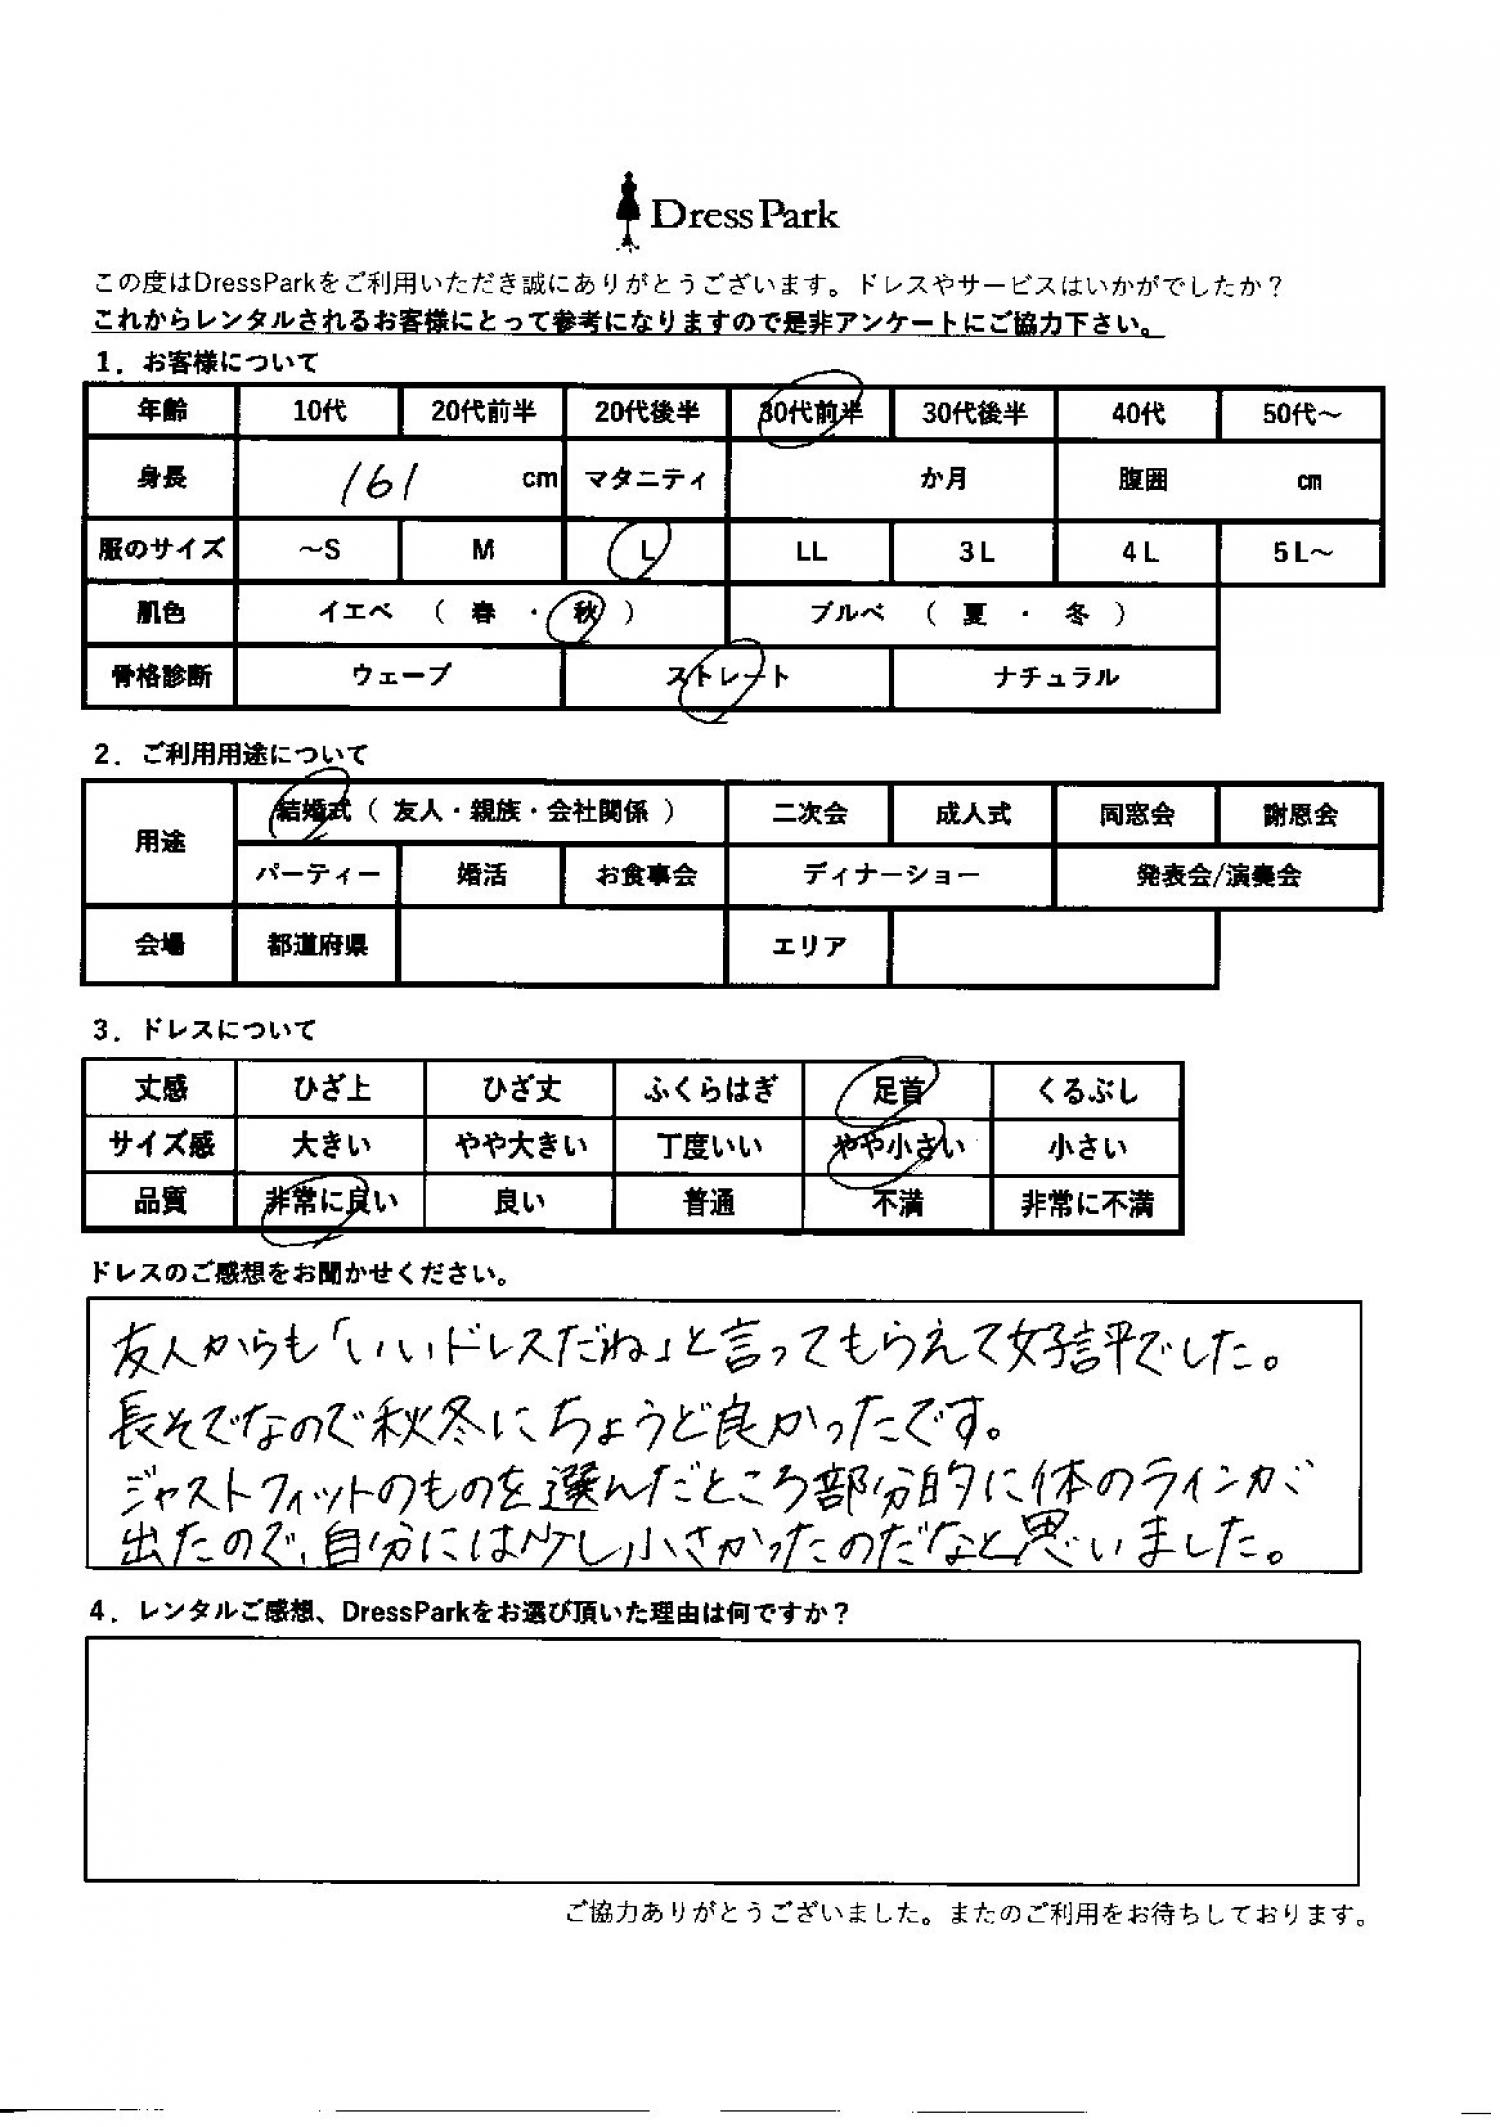 Dress Park
この度はDressParkをご利用いただき誠にありがとうございます。ドレスやサービスはいかがでしたか？
これからレンタルされるお客様にとって参考になりますので是非アンケートにご協力下さい。
1．お客様について
年齢 10代 20代前半 20代後半 30代前半 30代後半 40代 50代～
身長 161 cm マタニティ か月 腹囲 ㎝
服のサイズ ～S M L LL 3L 4L 5L～
肌色 イエベ （ 春 ・ 秋 ） ブルベ （ 夏 ・ 冬 ）
骨格診断 ウェーブ ストレート ナチュラル
2．ご利用用途について
用途 結婚式（ 友人・親族・会社関係 ） 二次会 成人式 同窓会 謝恩会
パーティー 婚活 お食事会 ディナーショー 発表会/演奏会
会場 都道府県 エリア
3．ドレスについて
丈感 ひざ上 ひざ丈 ふくらはぎ 足首 くるぶし
サイズ感 大きい やや大きい 丁度いい やや小さい 小さい
品質 非常に良い 良い 普通 不満 非常に不満
ドレスのご感想をお聞かせください。
友人からも「いいドレスだね」と言ってもらえて好評でした。
長そでなので秋冬にちょうど良かったです。
ジャストフィットのものを選んだところ部分的に体のラインが
出たので、自分には少し小さかったのだなと思いました。
4．レンタルご感想、DressParkをお選び頂いた理由は何ですか？
ご協力ありがとうございました。またのご利用をお待ちしております。